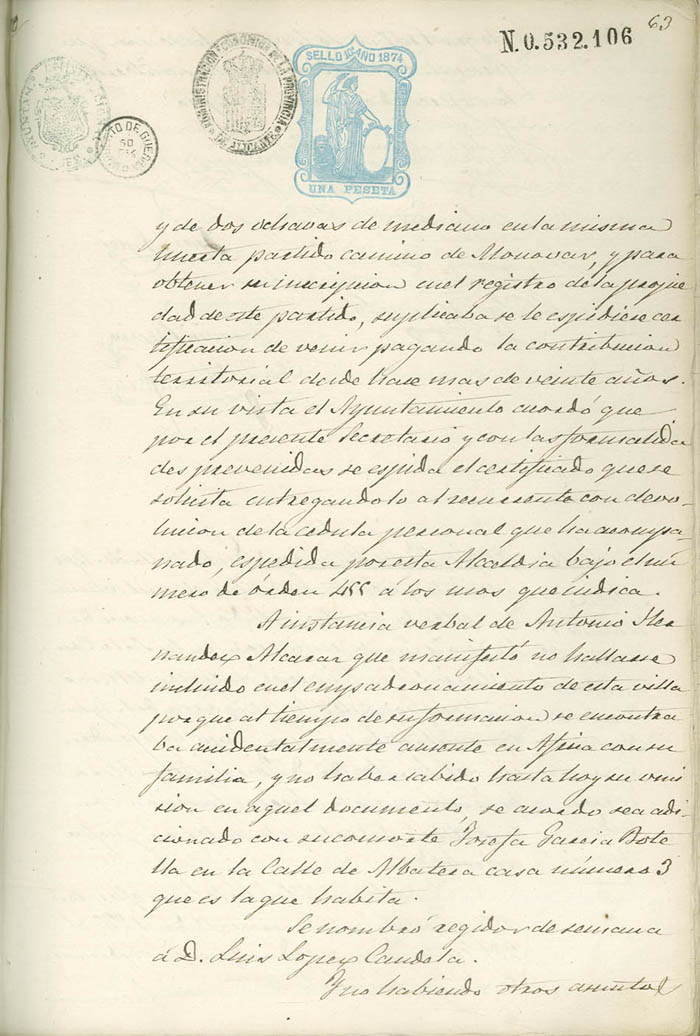 63
N.0.532.106
SELLO 10º AÑO 1874
UNA PESETA
ADMINISTRACION ECONOMICA DE LA PROVINCIA
DE ALICANTE
y de dos ochavas de mediano en la misma
huerta partido camino de Monovar, y para
obtener su inscripcion en el registro de la propie
dad de este partido, suplicaba se le espidiese cer
tificacion de venir pagando la contribucion
territorial desde hase mas de veinte años.
En su vista el Ayuntamiento acordó que
por el presente Secretario y con las formalida
des prevenidas se espida el certificado que se
solicita entregandolo al recurrente con devo-
lucion de la cedula personal que ha acompa
ñado, espedida por esta Alcaldia bajo el nú
mero de órden 455 á los mos que indica.
A instancia verbal de Antonio Her
nandez Alcaraz que manifestó no hallarse
incluido en el empadronamiento de esta villa
porque al tiempo de su formacion se encontra
ba accidentalmente ausente en Africa con su
familia, y no haber sabido hasta hoy su omi
sion en aquel documento, se acordo sea adi-
cionado con su consorte Josefa Garcia Bote
lla en la Calle de Albatera casa número 3
que es la que habita.
Se nombró regidor de semana
á D. Luis Lopez Candela.
Y no habiendo otros asuntos